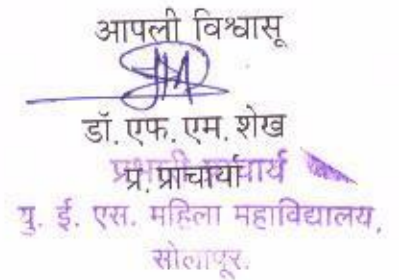 आपली विश्वासू
डॉ. एफ. एम. शेख
प्र. प्राचार्या
यु. ई. एस. महिला महाविद्यालय,
सोलापूर.